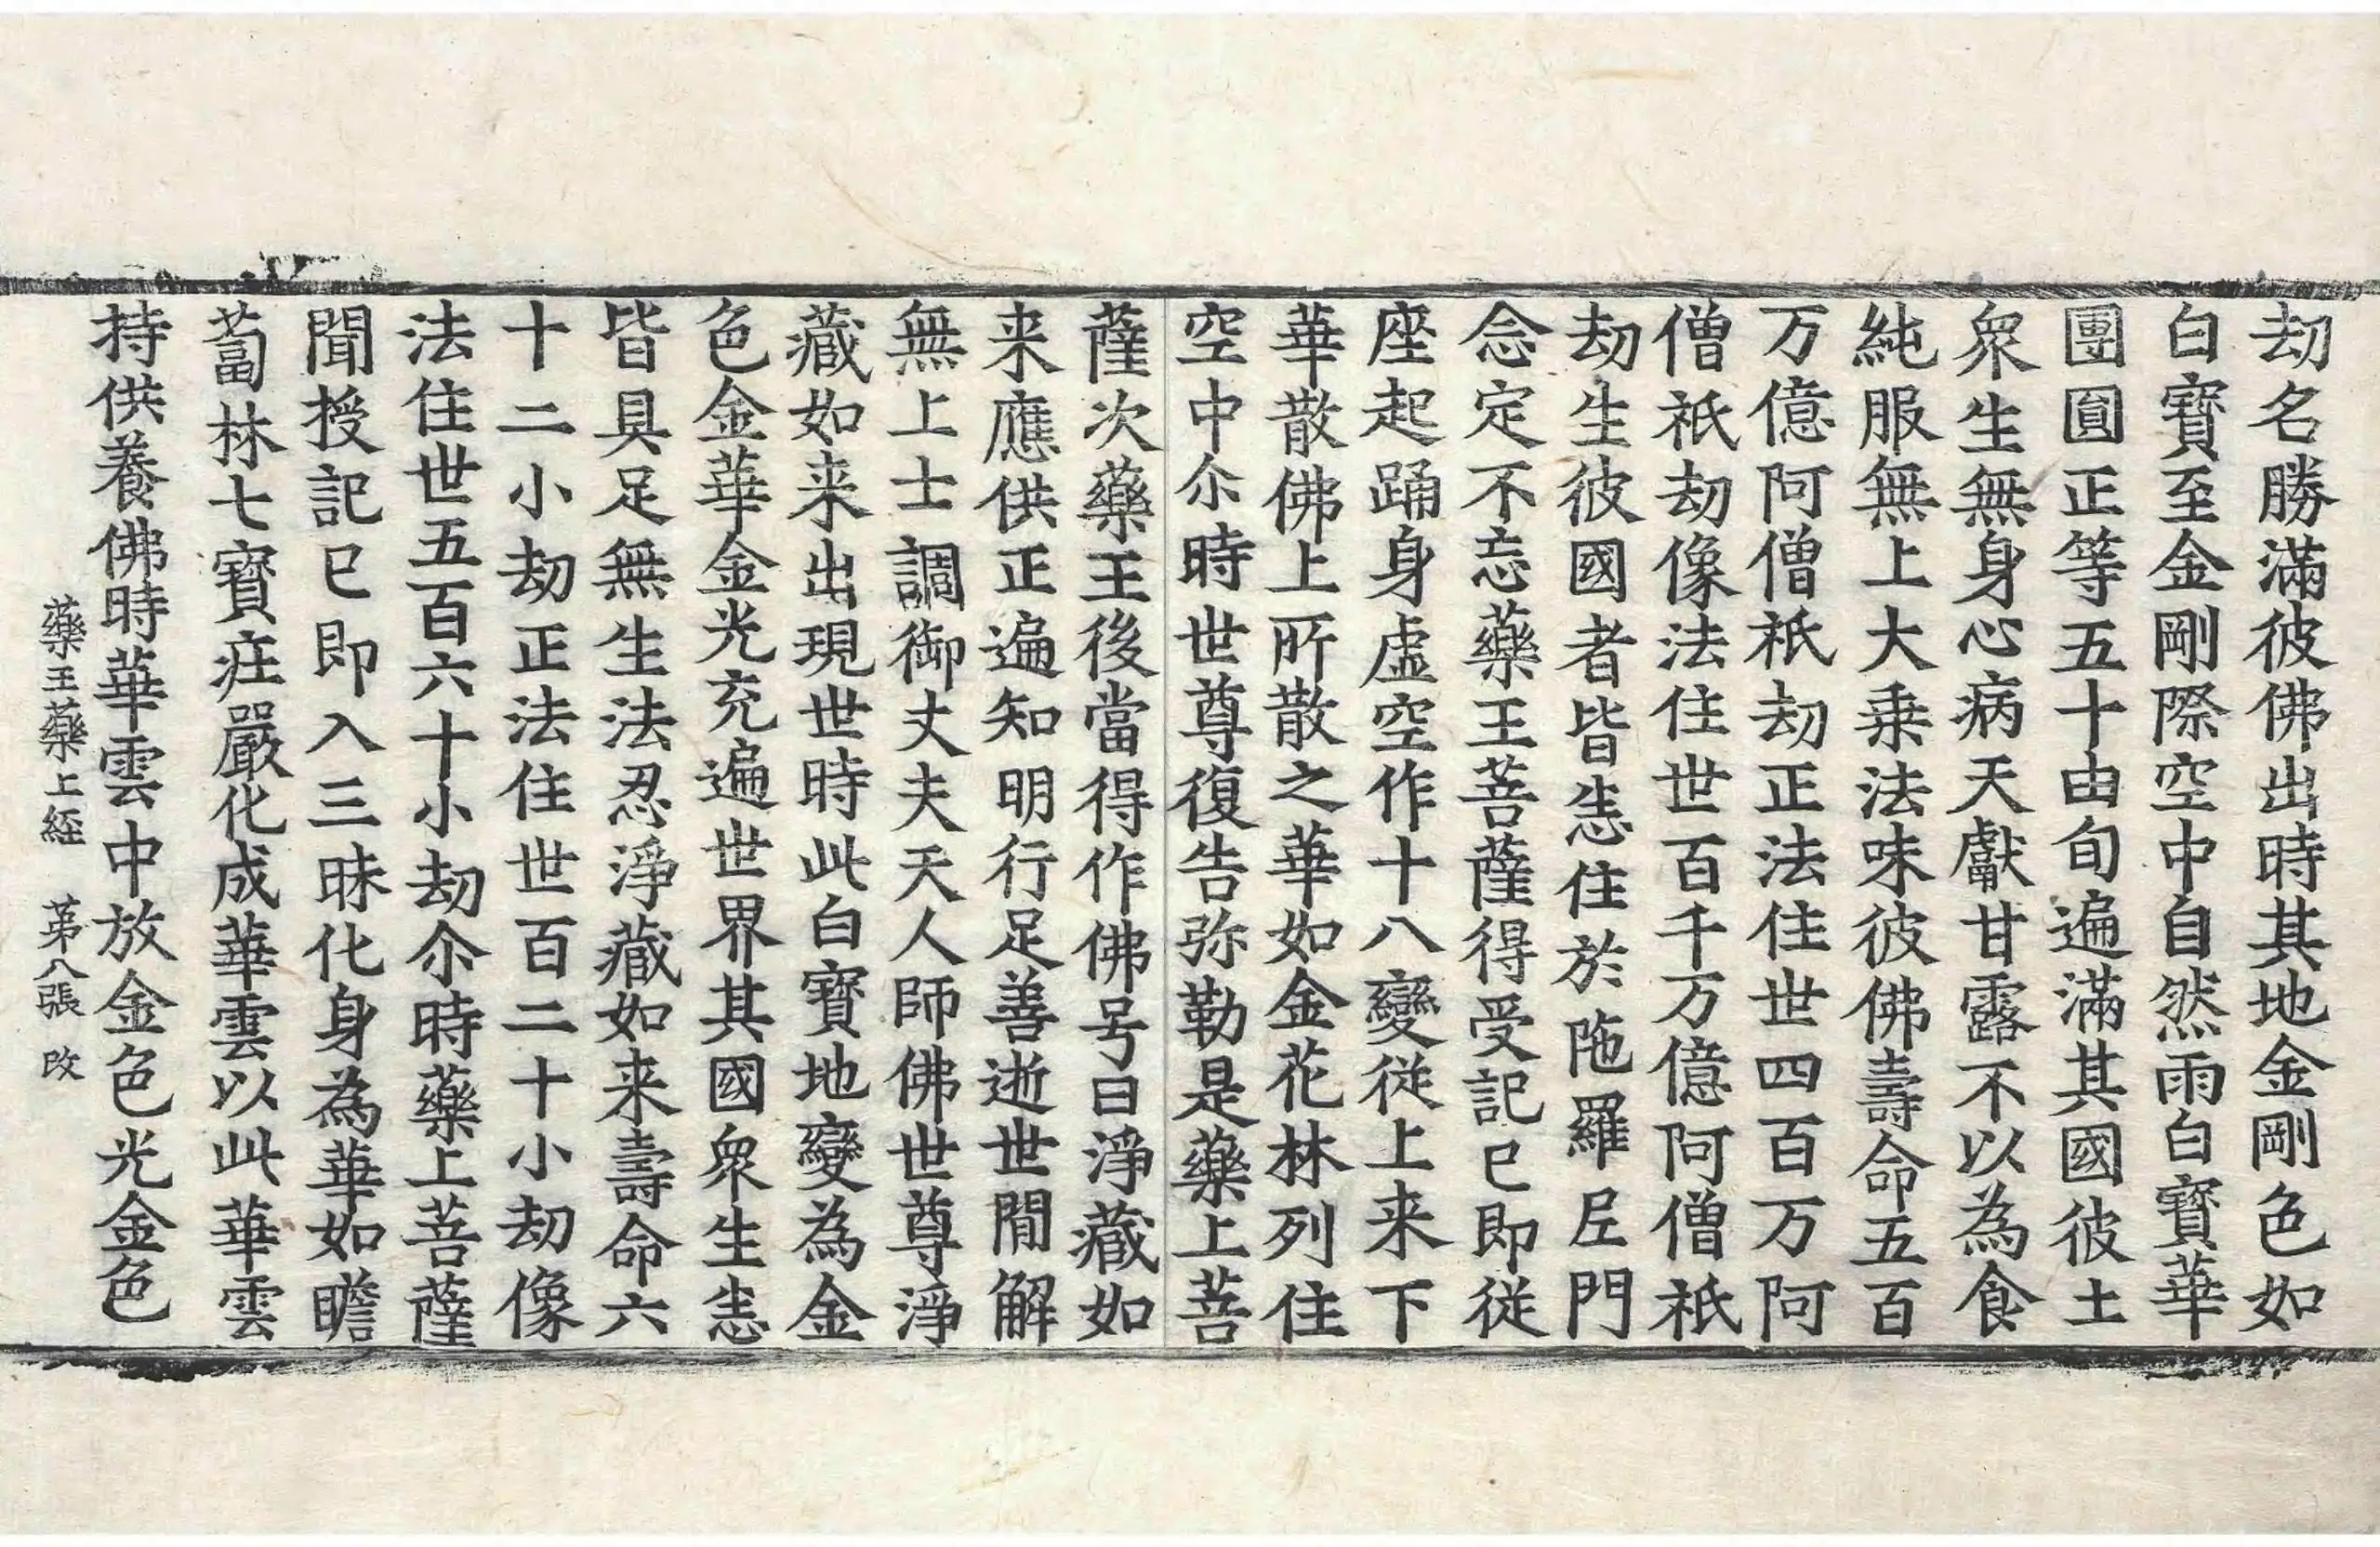 劫名勝滿彼佛出時其地金剛色如
白寶至金剛際空中自然雨白寶華
團圓正等五十由旬遍滿其國彼土
衆生無身心病天獻甘露不以為食
純服無上大乘法味彼佛壽命五百
万億阿僧祇劫正法住世四百万阿
僧祇劫像法住世百千万億阿僧祇
劫生彼國者皆恚住於陁羅𡰱門
念定不忘藥王菩薩得受記已即從
座起踊身虛空作十八變從上来下
華散佛上所散之華如金花林列住
空中尒時世尊復告弥勒是藥上菩
薩次藥王後當得作佛号曰淨藏如
来應供正遍知明行足善逝世閒解
無上士調御丈夫天人師佛世尊淨
藏如来出現世時此白寶地變為金
色金華金光充遍世界其國衆生恚
皆具足無生法忍淨藏如来壽命六
十二小劫正法住世百二十小劫像
法住世五百六十小劫尒時藥上菩薩
聞授記已即入三昧化身為華如瞻
蔔林七寶庄嚴化成華雲以此華雲
持供養佛時華雲中放金色光金色
藥王藥上経 苐八張 改